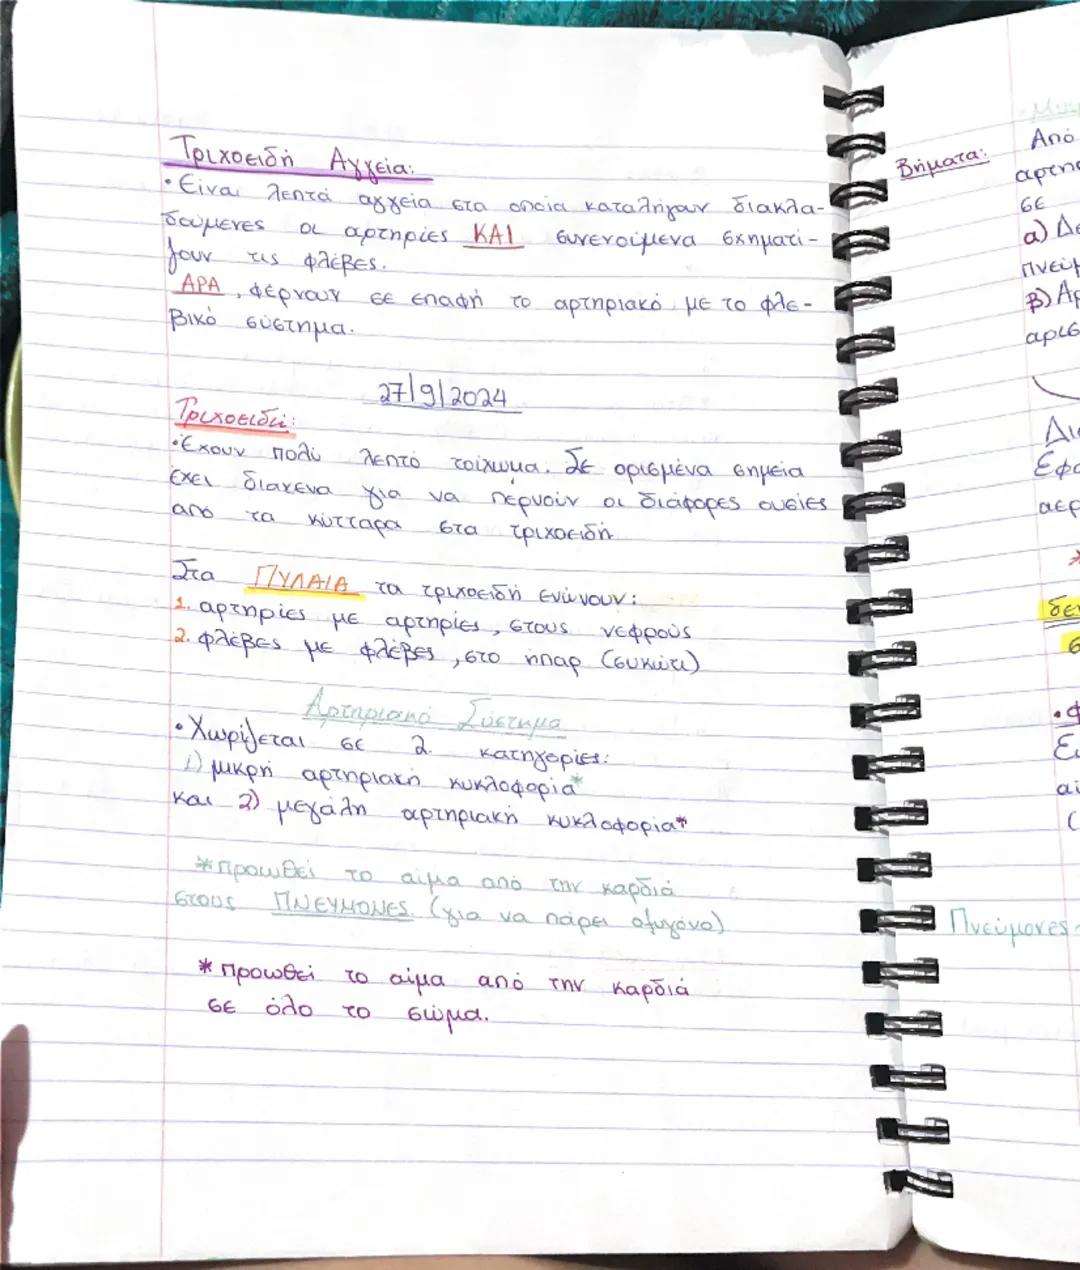 Τριχοειδή Αγγεία:
• Είναι λεπτά αγγεία στα οποία καταλήγουν διακλα-
δούμενες οι αρτηρίες ΚΑΙ συνενούμενα σχηματί-
ζουν τις φλέβες.
ΑΡΑ, φέρνουν σε επαφή το αρτηριακό με το φλε-
βικό σύστημα.
27/9/2024
Τριχοειδή:
• Έχουν πολύ λεπτό τοίχωμα. Σε ορισμένα σημεία
έχει διακενα για να περνούν οι διάφορες ουσίες
από τα κύτταρα στα τριχοειδή
Στα ΠΥΛΑΙΑ τα τριχοειδή ενώνουν:
1. αρτηρίες με αρτηρίες, στους νεφρούς
2. φλέβες με φλέβες, στο ήπαρ (συκώτι)
Αρτηριακό Σύστημα
• Χωρίζεται σε 2 κατηγορίες:
1) μικρή αρτηριακή κυκλοφορία*
και 2) μεγάλη αρτηριακή κυκλοφορία*
* προωθεί το αίμα από την καρδιά
στους ΠΝΕΥΜΟΝΕΣ. (για να πάρει οξυγόνο)
* προωθεί το αίμα από την καρδιά
σε όλο το σώμα.
Βήματα:
Από
σε
α)
β)
Πνεύμονες